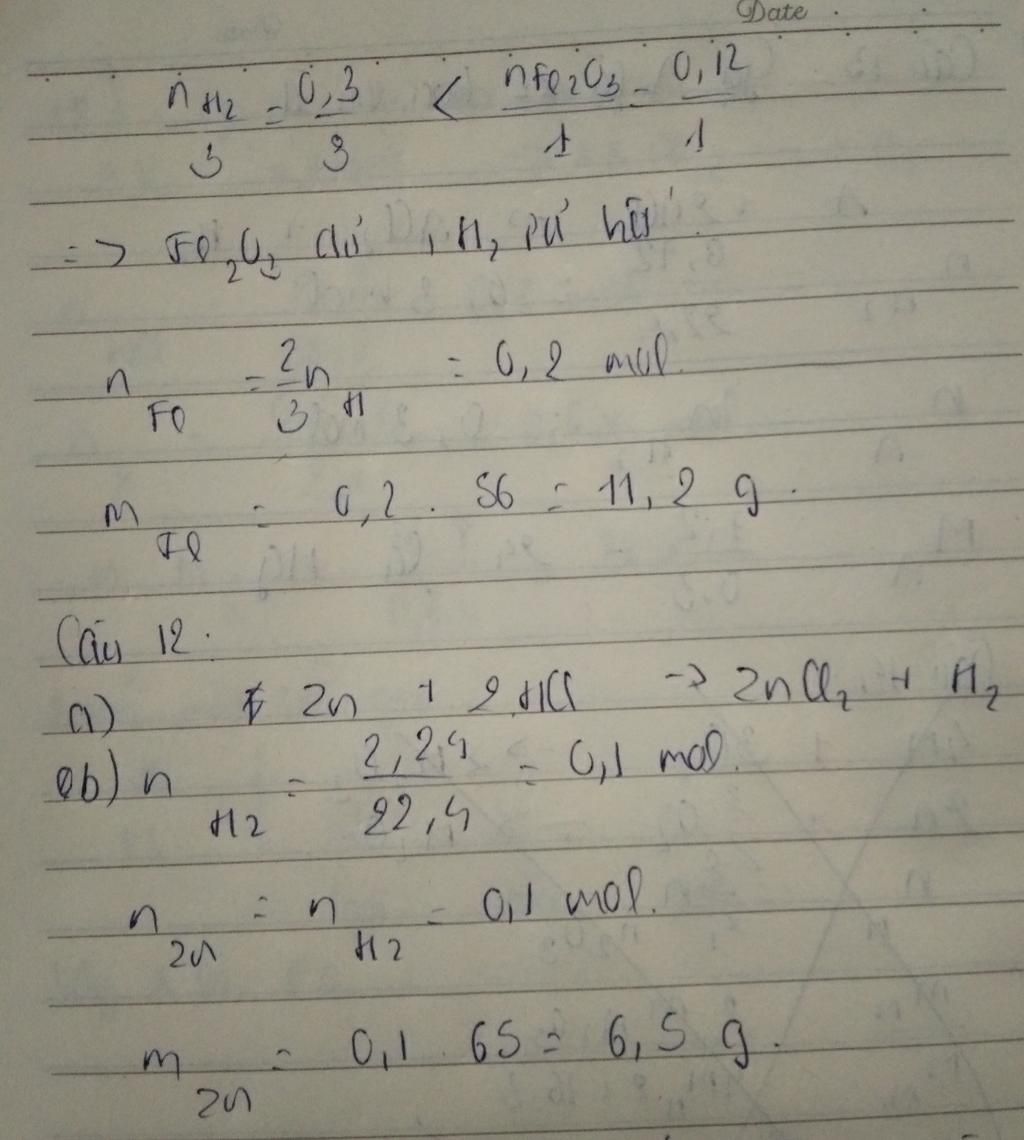 Date
n H2 / 3 = 0,3 / 3 < nFe2O3 / 1 = 0,12 / 1
=> Fe2O3 dư, H2 pứ hết.
n Fe = 2/3 n H = 0,2 mol.
m Fe = 0,2 . 56 = 11,2 g.
Câu 12.
a) Zn + 2 HCl -> ZnCl2 + H2
b) n H2 = 2,24 / 22,4 = 0,1 mol.
n Zn = n H2 = 0,1 mol.
m Zn = 0,1 . 65 = 6,5 g.